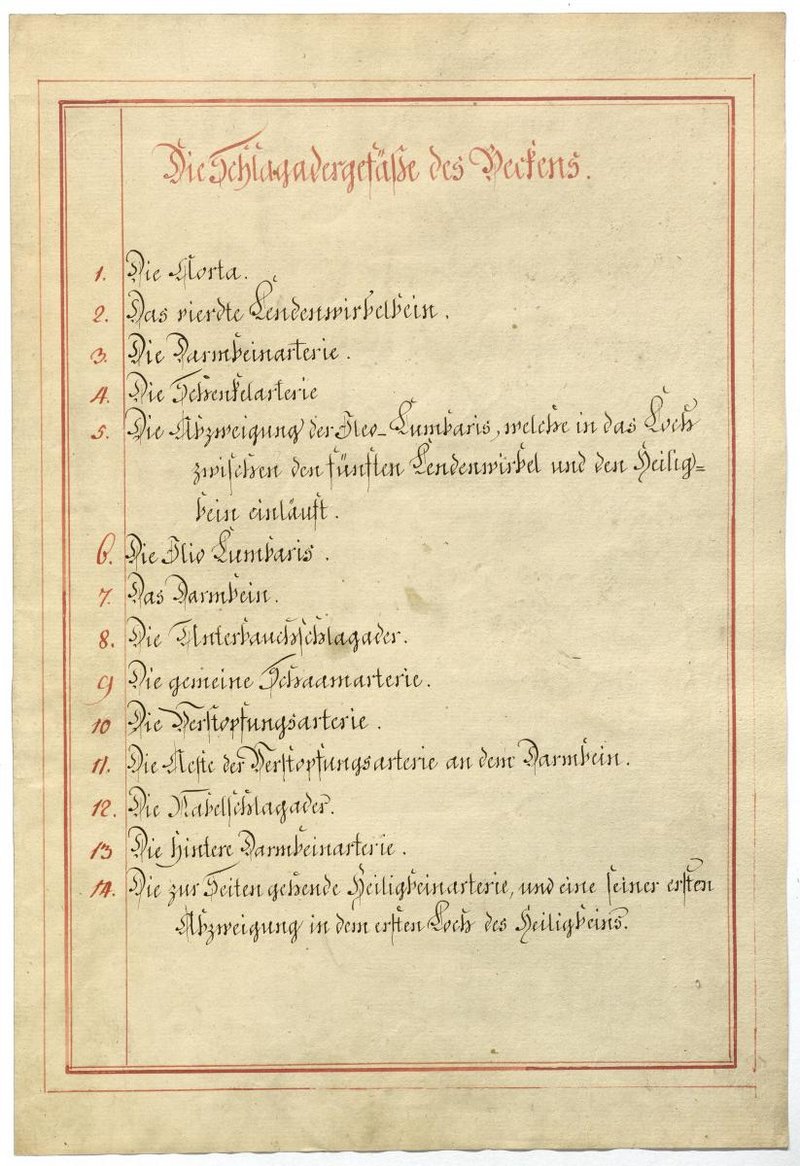 Die Schlagadergefäße des Beckens.
1. Die Aorta.
2. Das vierdte Lendenwirbelbein.
3. Die Darmbeinarterie.
4. Die Schenkelarterie
5. Die Abzweigung der Ileo-Lumbaris, welche in das Loch
zwischen den fünften Lendenwirbel und den Heilig=
bein einläuft.
6. Die Ilio Lumbaris.
7. Das Darmbein.
8. Die Unterbauchschlagader.
9 Die gemeine Schaamarterie.
10 Die Verstopfungsarterie.
11. Die Aeste der Verstopfungsarterie an dem Darmbein.
12. Die Nabelschlagader.
13 Die hintere Darmbeinarterie.
14. Die zur Seiten gehende Heiligbeinarterie, und eine seiner ersten
Abzweigung in dem ersten Loch des Heiligbeins.